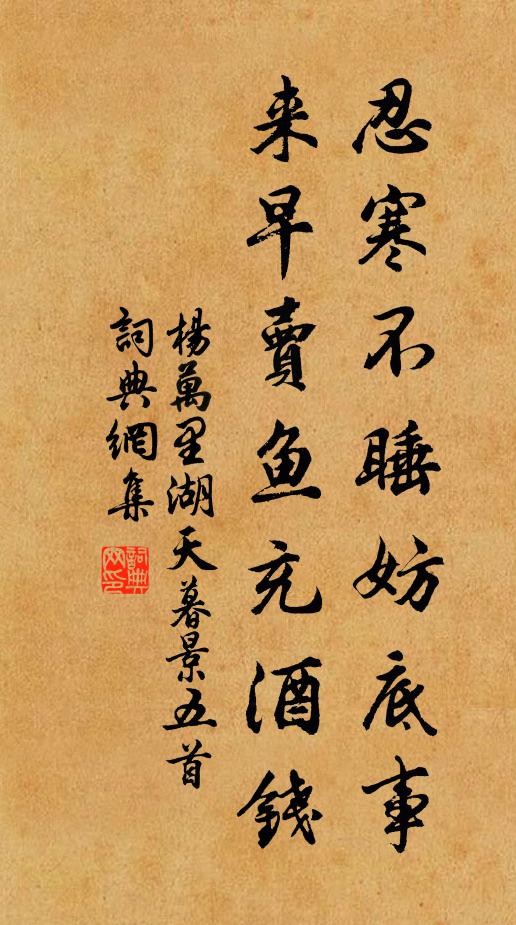 忍寒不睡妨底事
来早賣鱼充酒錢
楊萬里湖天暮景五首
詞典網集
詞典網印